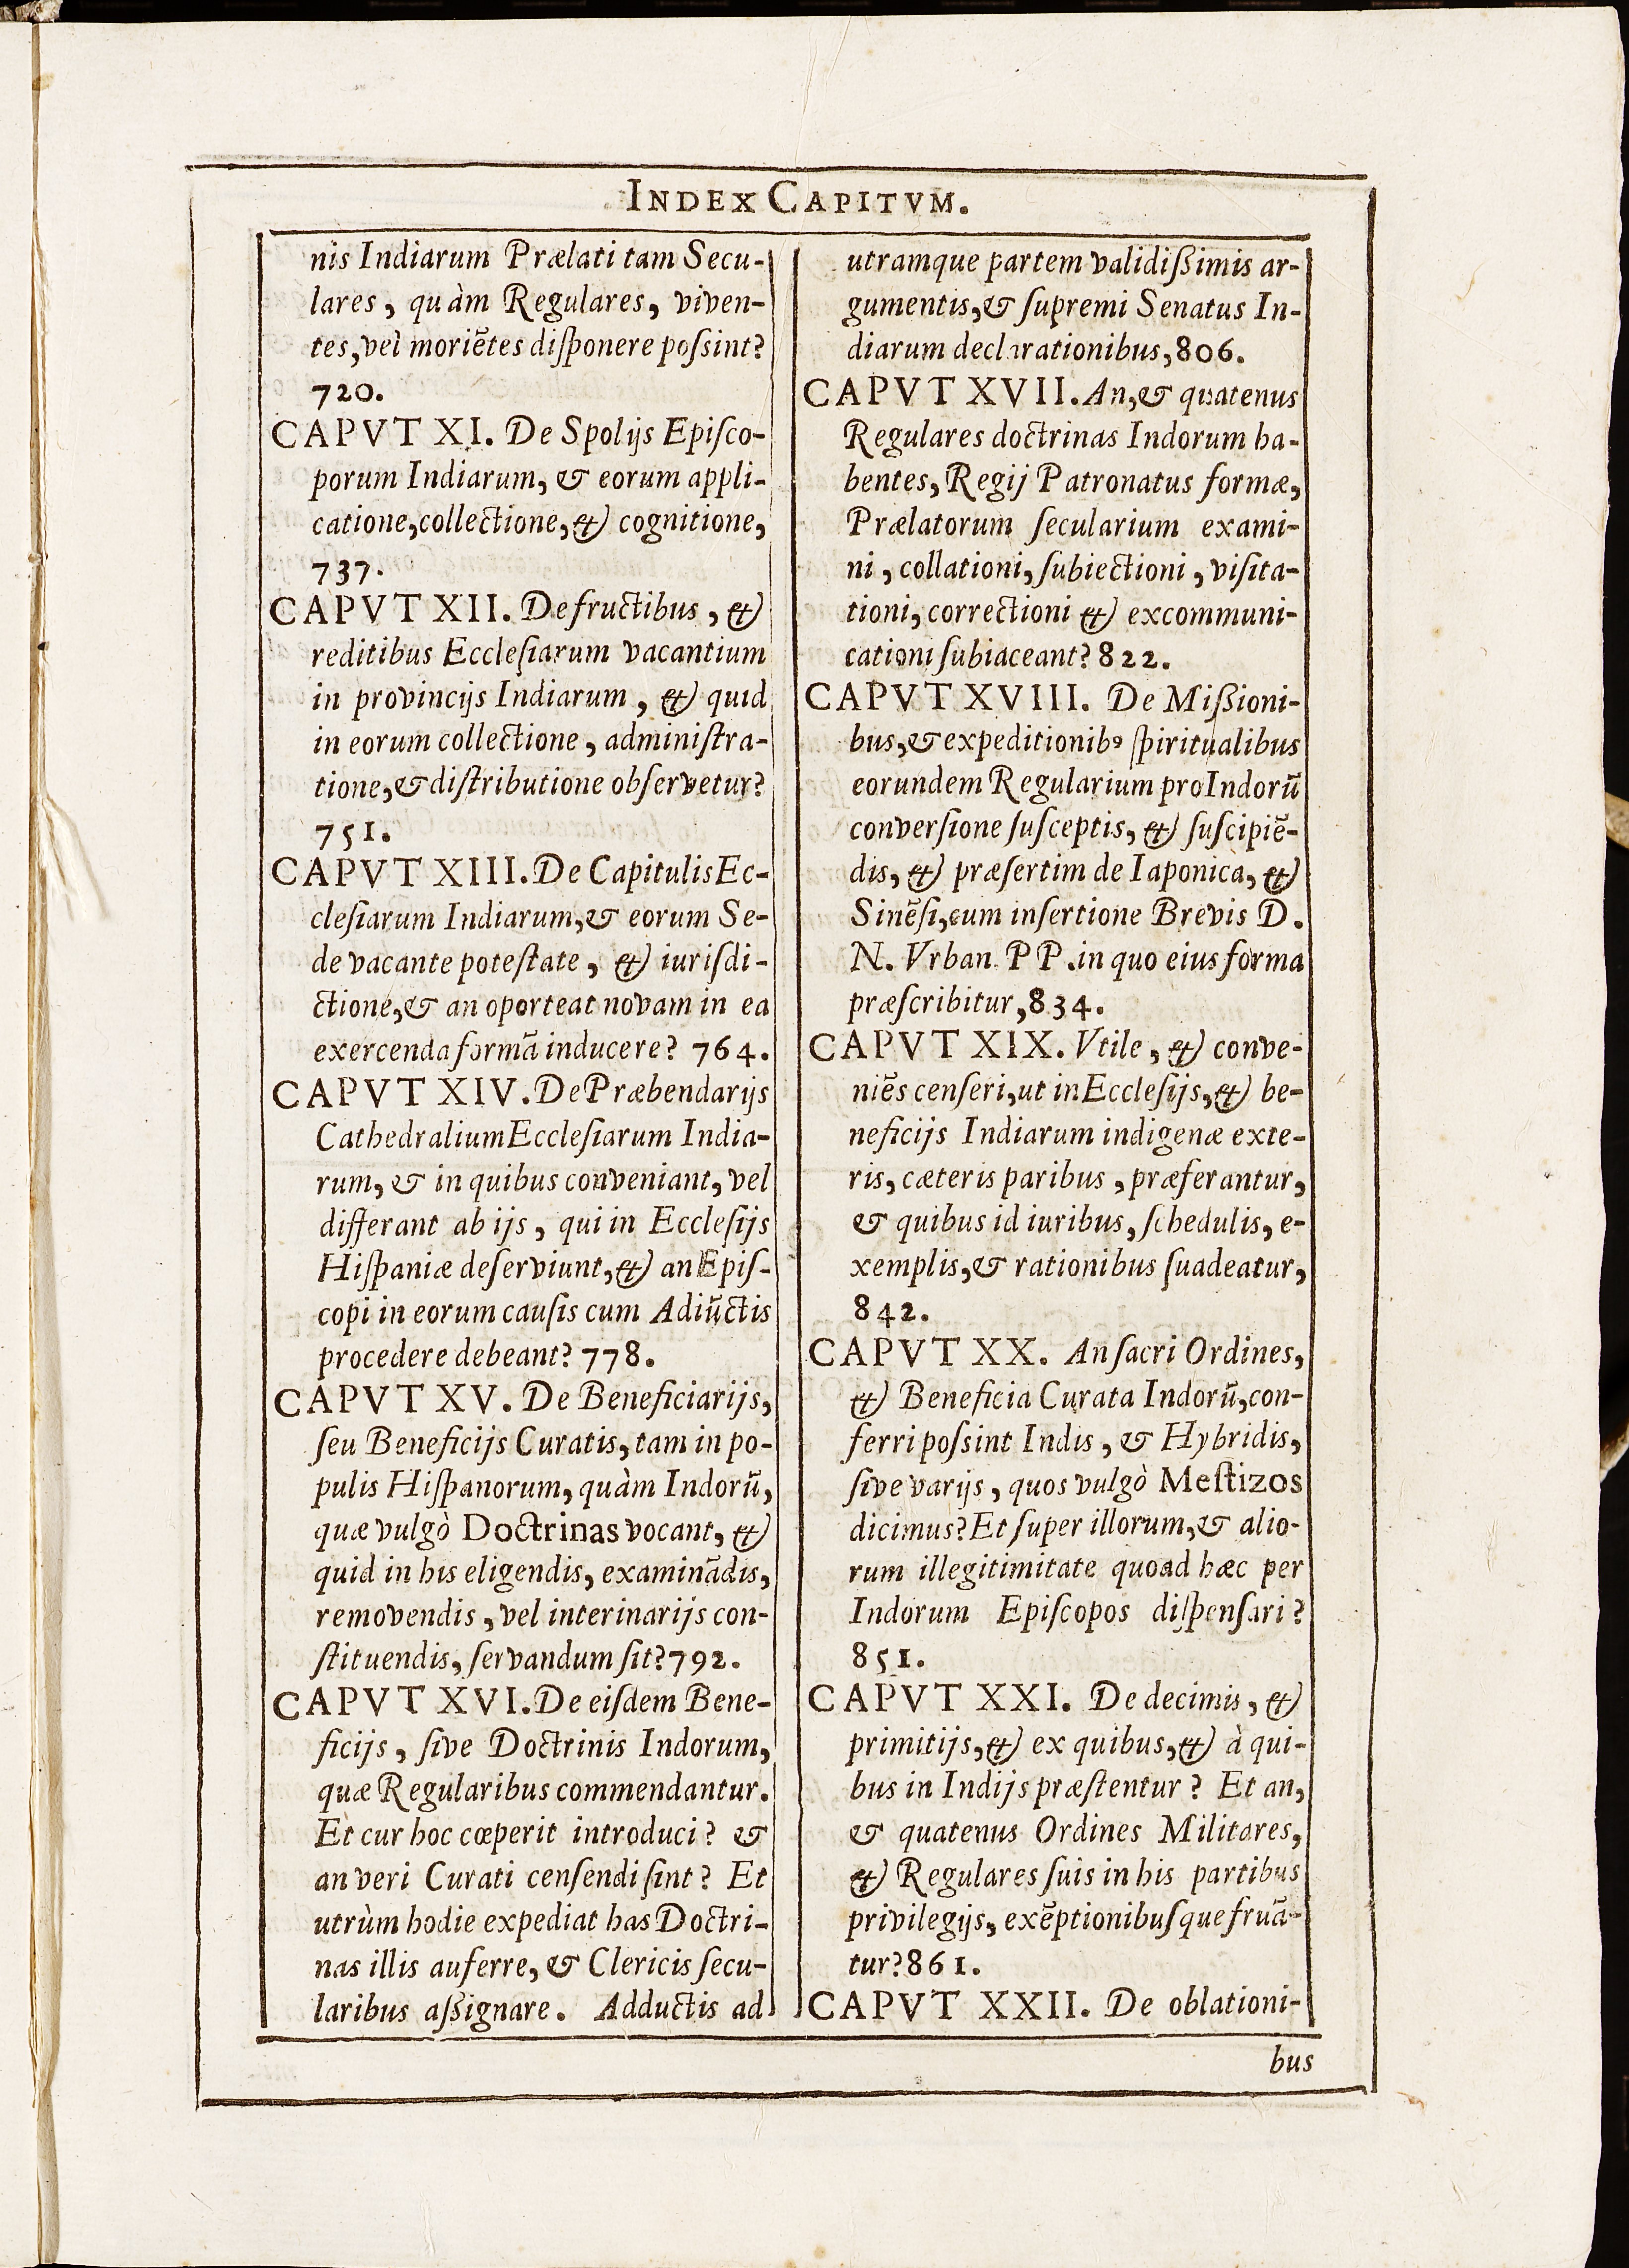 INDEX CAPITVM.
nis Indiarum Prælati tam Secu-
lares, quàm Regulares, viven-
tes, vel moriētes diſponere poſsint?
720.
CAPVT XI. De Spolijs Epiſco-
porum Indiarum, & eorum appli-
catione, collectione, & cognitione,
737.
CAPVT XII. De fructibus, &
reditibus Eccleſiarum vacantium
in provincijs Indiarum, & quid
in eorum collectione, adminiſtra-
tione, & diſtributione obſervetur?
751.
CAPVT XIII. De Capitulis Ec-
cleſiarum Indiarum, & eorum Se-
de vacante poteſtate, & iuriſdi-
ctione, & an oporteat novam in ea
exercenda formā inducere? 764.
CAPVT XIV. De Præbendarijs
Cathedralium Eccleſiarum India-
rum, & in quibus conveniant, vel
differant ab ijs, qui in Eccleſijs
Hiſpaniæ deſerviunt, & an Epiſ-
copi in eorum cauſis cum Adiūctis
procedere debeant? 778.
CAPVT XV. De Beneficiarijs,
ſeu Beneficijs Curatis, tam in po-
pulis Hiſpanorum, quàm Indorū,
quæ vulgò Doctrinas vocant, &
quid in his eligendis, examinādis,
removendis, vel interinarijs con-
ſtituendis, ſervandum ſit? 792.
CAPVT XVI. De eiſdem Bene-
ficijs, ſive Doctrinis Indorum,
quæ Regularibus commendantur.
Et cur hoc cœperit introduci? &
an veri Curati cenſendi ſint? Et
utrùm hodie expediat has Doctri-
nas illis auferre, & Clericis ſecu-
laribus aſsignare. Adductis ad
utramque partem validiſsimis ar-
gumentis, & ſupremi Senatus In-
diarum declarationibus, 806.
CAPVT XVII. An, & quatenus
Regulares doctrinas Indorum ha-
bentes, Regij Patronatus formæ,
Prælatorum ſecularium exami-
ni, collationi, ſubiectioni, viſita-
tioni, correctioni & excommuni-
cationi ſubiaceant? 822.
CAPVT XVIII. De Miſsioni-
bus, & expeditionibꝰ ſpiritualibus
eorundem Regularium pro Indorū
converſione ſuſceptis, & ſuſcipiē-
dis, & præſertim de Iaponica, &
Sinēſi, cum inſertione Brevis D.
N. Vrban. PP. in quo eius forma
præſcribitur, 834.
CAPVT XIX. Vtile, & conve-
niēs cenſeri, ut in Eccleſijs, & be-
neficijs Indiarum indigenæ exte-
ris, cæteris paribus, præferantur,
& quibus id iuribus, ſchedulis, e-
xemplis, & rationibus ſuadeatur,
842.
CAPVT XX. An ſacri Ordines,
& Beneficia Curata Indorū, con-
ferri poſsint Indis, & Hybridis,
ſive varijs, quos vulgò Meſtizos
dicimus? Et ſuper illorum, & alio-
rum illegitimitate quoad hæc per
Indorum Epiſcopos diſpenſari?
851.
CAPVT XXI. De decimis, &
primitijs, & ex quibus, & à qui-
bus in Indijs præſtentur? Et an,
& quatenus Ordines Militares,
& Regulares ſuis in his partibus
privilegijs, exēptionibuſque fruā-
tur? 861.
CAPVT XXII. De oblationi-
bus